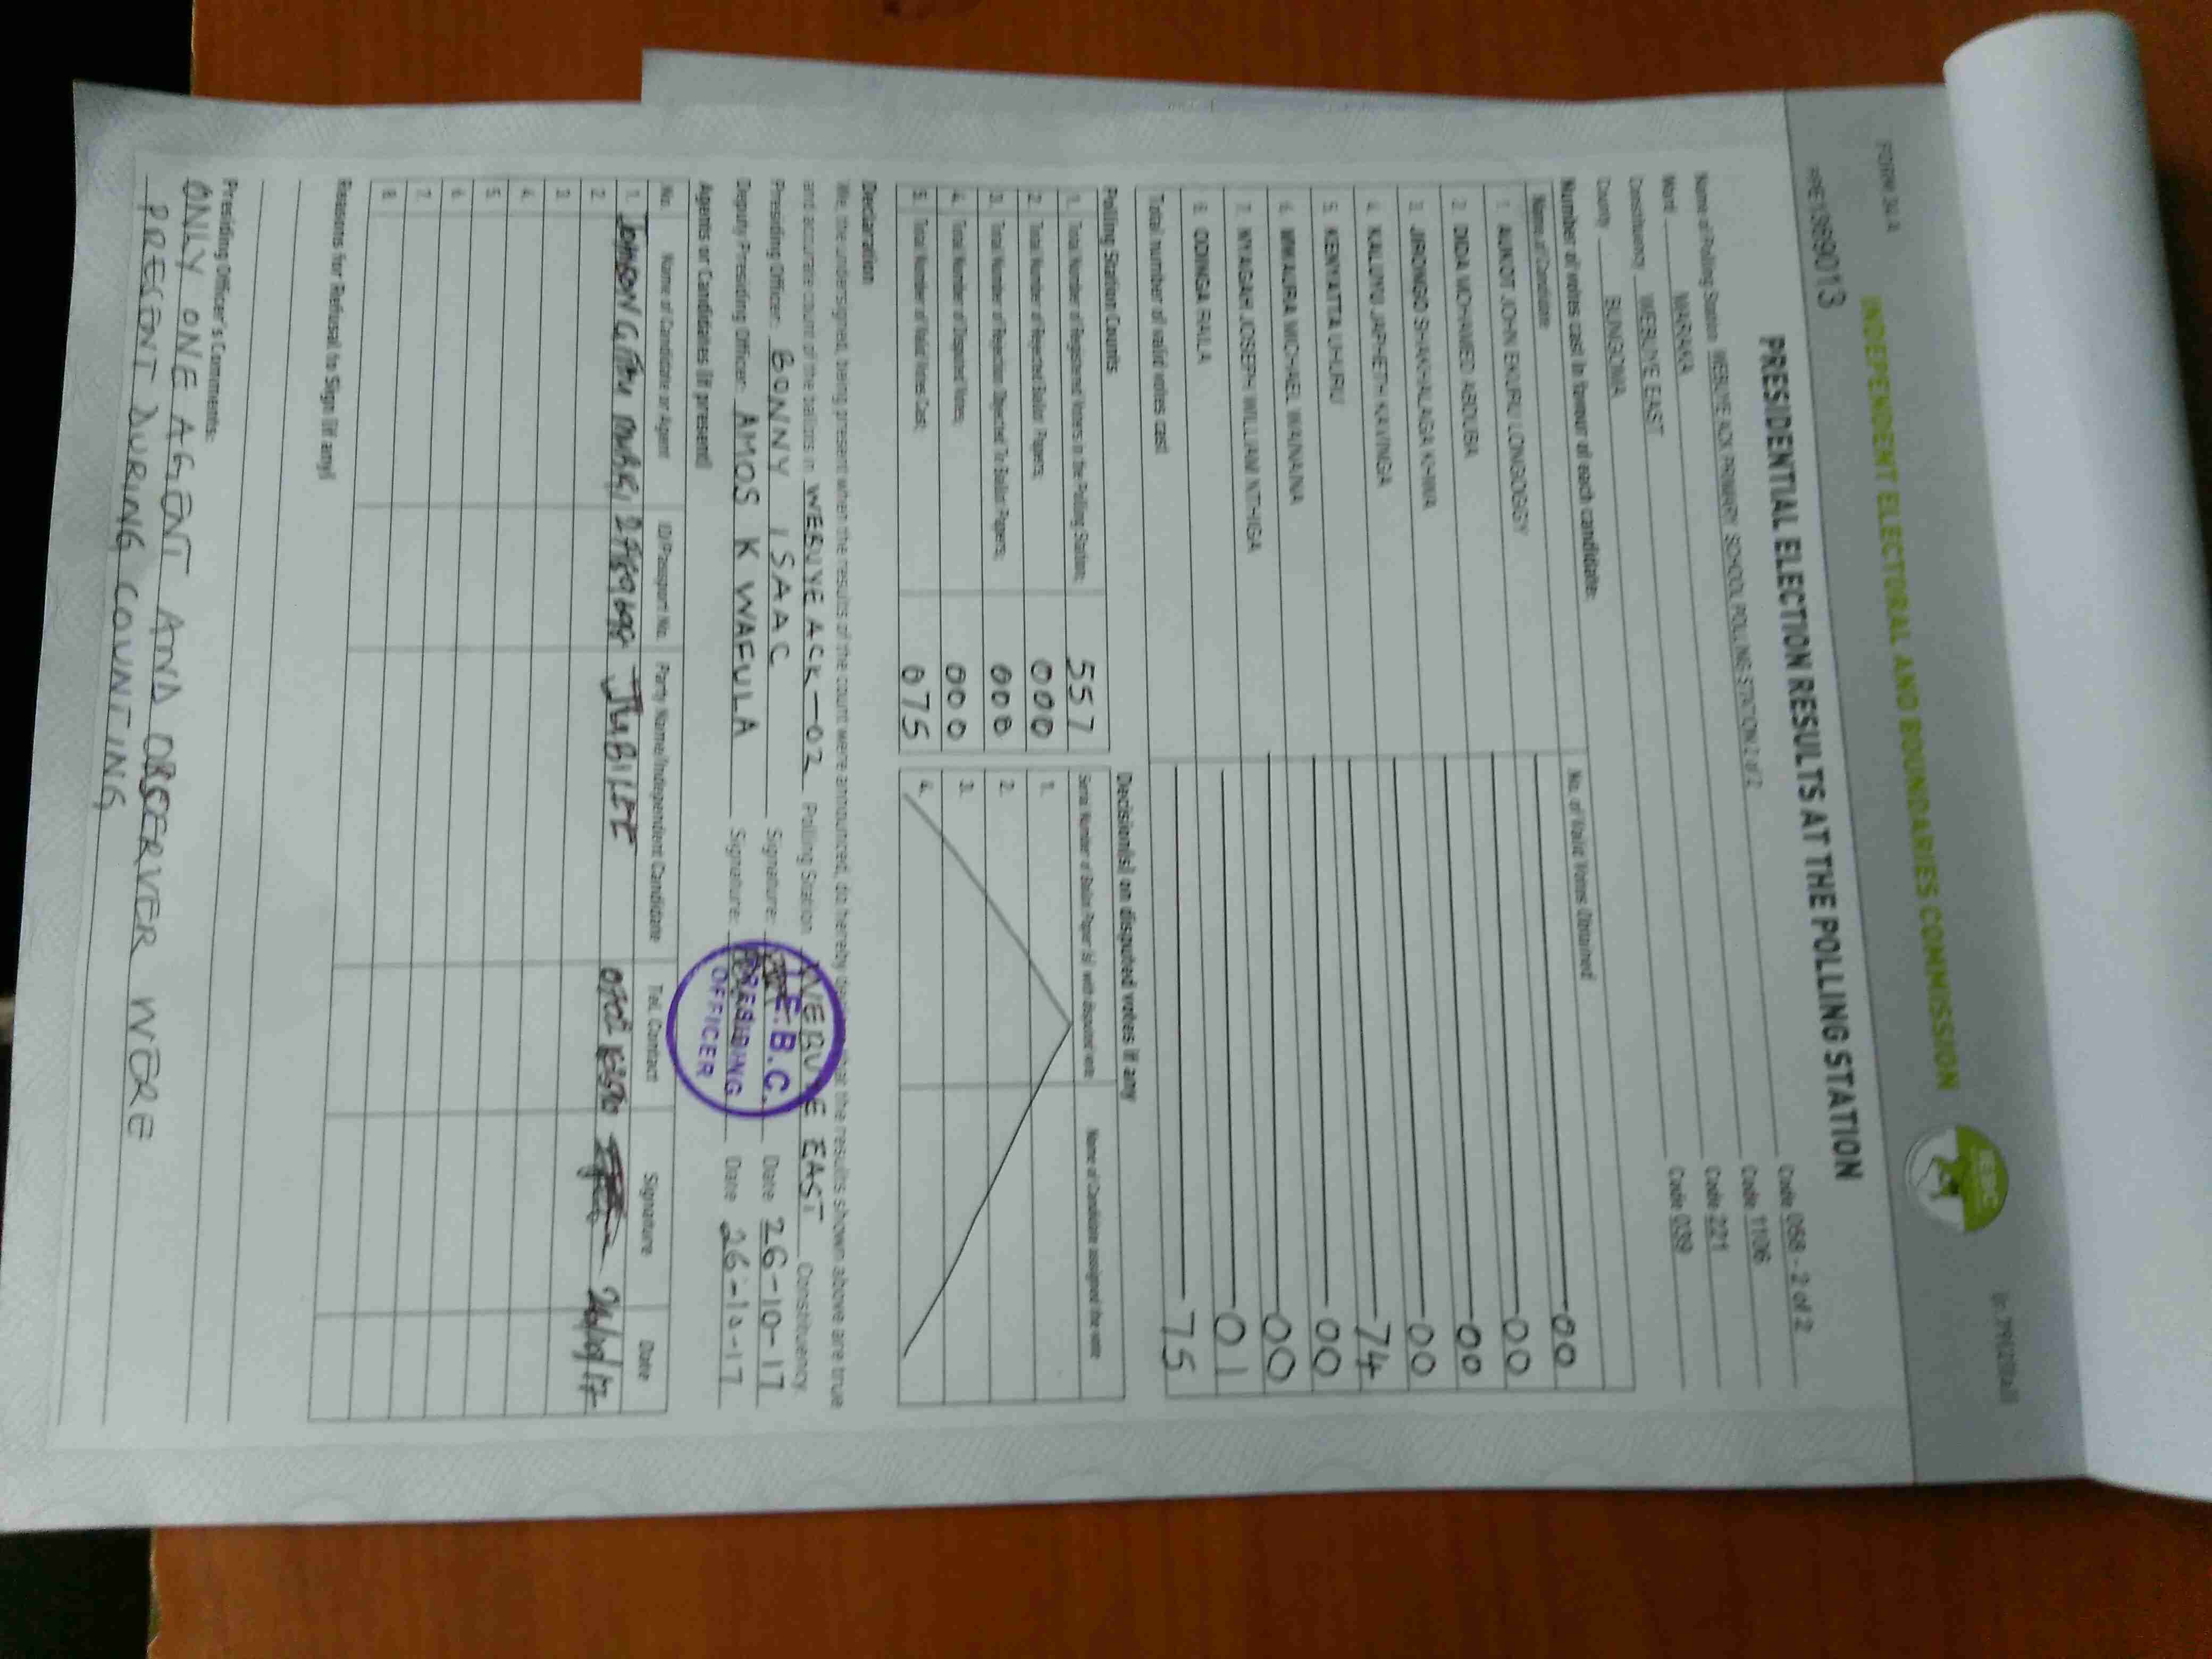 FORM 34 A
INDEPENDENT ELECTORAL AND BOUNDARIES COMMISSION
IEBC
PRESIDENTIAL ELECTION RESULTS AT THE POLLING STATION
Name of Polling Station WEBUYE ACK PRIMARY SCHOOL POLLING STATION 2 of 2 Code 058 - 2 of 2
Ward MARAKA Code 1106
Constituency WEBUYE EAST Code 221
County BUNGOMA Code 039
Number of votes cast in favour of each candidate:
Name of Candidate No. of Valid Votes Obtained
1. AUKOT JOHN EKURU LONGOGGY 00
2. DIDA MOHAMED ABDUBA 00
3. JIRONGO SHAKHALAGA KHWA 00
4. KALUYU JAPHETH KAVINGA 00
5. KENYATTA UHURU 74
6. MWAURA MICHAEL WAINAINA 00
7. NYAGAH JOSEPH WILLIAM NTHIGA 00
8. ODINGA RAILA 01
Total number of valid votes cast 75
Polling Station Counts
1. Total Number of Registered Voters in the Polling Station; 557
2. Total Number of Rejected Ballot Papers; 000
3. Total Number of Rejection Objected To Ballot Papers; 000
4. Total Number of Disputed Votes; 000
5. Total Number of Valid Votes Cast; 075
Decision(s) on disputed votes if any
Serial Number of Ballot Paper (s) with disputed vote Name of Candidate assigned the vote
1.
2.
3.
4.
Declaration
We, the undersigned, being present when the results of the count were announced, do hereby that the results shown above are true
and accurate count of the ballots in WEBUYE ACK-02 Polling Station WEBUYE EAST Constituency.
Presiding Officer: BONNY ISAAC Signature: Date 26-10-17
Deputy Presiding Officer: AMOS K WAFULA Signature: Date 26-10-17
I.E.B.C.
PRESIDING
OFFICER
Agents or Candidates (if present)
No. Name of Candidate or Agent ID/Passport No. Party Name/Independent Candidate Tel. Contact Signature Date
1. JUBILEE 26/10/17
2
3
4
5
6
7
8
Reasons for Refusal to Sign (if any)
Presiding Officer's Comments:
ONLY ONE AGENT AND OBSERVER WERE
PRECENT DURING COUNTING